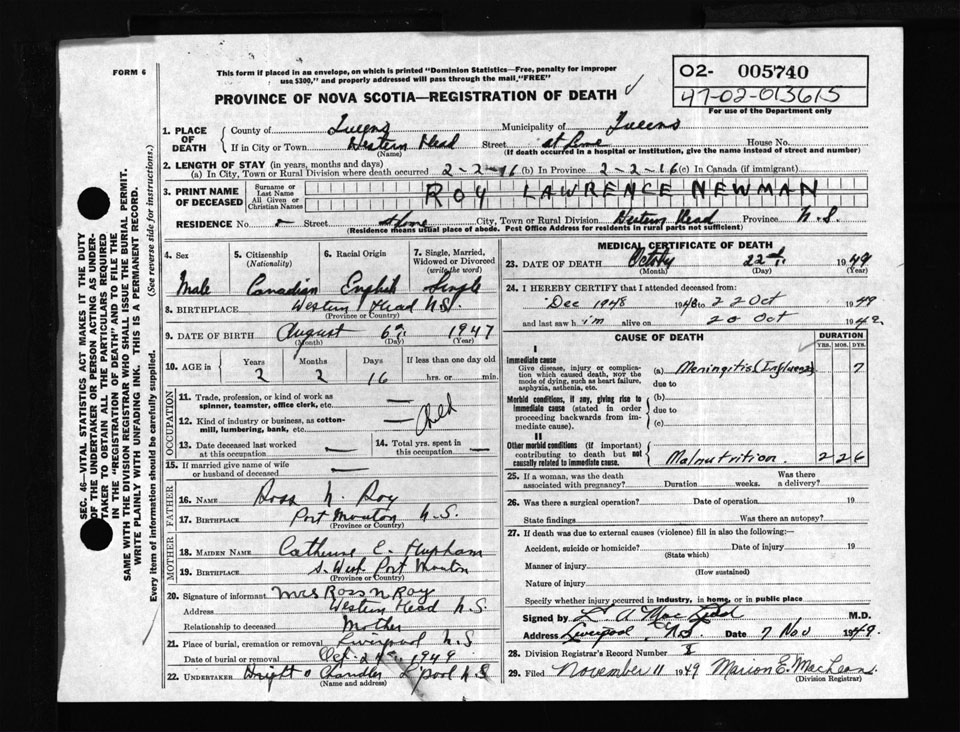 FORM 6
This form if placed in an envelope, on which is printed "Dominion Statistics—Free, penalty for improper
use $300," and properly addressed will pass through the mail, "FREE"
PROVINCE OF NOVA SCOTIA—REGISTRATION OF DEATH
02- 005740
47-02-013615
For use of the Department only
1. PLACE OF DEATH
County of Queens Municipality of Queens
If in City or Town Western Head Street at home House No.
(Name) (If death occurred in a hospital or institution, give the name instead of street and number)
2. LENGTH OF STAY (in years, months and days)
(a) In City, Town or Rural Division where death occurred 2-2-16 (b) In Province 2-2-16 (c) In Canada (if immigrant)
3. PRINT NAME OF DECEASED
Surname or Last Name
All Given or Christian Names
ROY LAWRENCE NEWMAN
RESIDENCE No. - Street at home City, Town or Rural Division Western Head Province N.S.
(Residence means usual place of abode. Post Office Address for residents in rural parts not sufficient)
4. Sex
Male
5. Citizenship
(Nationality)
Canadian
6. Racial Origin
English
7. Single, Married, Widowed or Divorced
(write the word)
Single
8. BIRTHPLACE Western Head N.S.
(Province or Country)
9. DATE OF BIRTH August 6th 1947
(Month) (Day) (Year)
10. AGE in
Years Months Days If less than one day old
2 2 16 hrs. or min.
OCCUPATION
11. Trade, profession, or kind of work as
spinner, teamster, office clerk, etc. —
12. Kind of industry or business, as cotton-
mill, lumbering, bank, etc. — Child
13. Date deceased last worked
at this occupation —
14. Total yrs. spent in
this occupation —
15. If married give name of wife
or husband of deceased —
FATHER
16. NAME Ross N. Roy
17. BIRTHPLACE Port Mouton N.S.
(Province or Country)
MOTHER
18. MAIDEN NAME Catherine E. Hupham
19. BIRTHPLACE S. West Port Mouton
(Province or Country)
20. Signature of informant Mrs Ross N Roy
Address Western Head N.S.
Relationship to deceased Mother
21. Place of burial, cremation or removal Liverpool N.S
Date of burial or removal Oct. 24th 1949
22. UNDERTAKER Chandler L'pool N.S
(Name and address)
MEDICAL CERTIFICATE OF DEATH
23. DATE OF DEATH 22nd 1949
(Month) (Day) (Year)
24. I HEREBY CERTIFY that I attended deceased from:
Dec 1948 1948 to 22 Oct 1949
and last saw him alive on 20 Oct 1949.
CAUSE OF DEATH
DURATION
YRS. MOS. DYS.
I
Immediate cause
Give disease, injury or complica-
tion which caused death, not the
mode of dying, such as heart failure,
asphyxia, asthenia, etc.
(a) Meningitis (Influenza) 7
due to
Morbid conditions, if any, giving rise to
immediate cause (stated in order
proceeding backwards from im-
mediate cause).
(b)
due to
(c)
II
Other morbid conditions (if important)
contributing to death but not
causally related to immediate cause.
Malnutrition. 2 2 6
25. If a woman, was the death
associated with pregnancy? Duration weeks. Was there
a delivery?
26. Was there a surgical operation? Date of operation 19
State findings Was there an autopsy?
27. If death was due to external causes (violence) fill in also the following:—
Accident, suicide or homicide? Date of injury 19
(State which)
Manner of injury
(How sustained)
Nature of injury
Specify whether injury occurred in industry, in home, or in public place
Signed by M.D.
Address Liverpool, N.S. Date 7 Nov 1949.
28. Division Registrar's Record Number
29. Filed November 11 1949 Marion E. MacLean.
(Division Registrar)
SEC. 46—VITAL STATISTICS ACT MAKES IT THE DUTY
OF THE UNDERTAKER OR PERSON ACTING AS UNDER-
TAKER TO OBTAIN ALL THE PARTICULARS REQUIRED
IN THE "REGISTRATION OF DEATH" AND TO FILE THE
SAME WITH THE DIVISION REGISTRAR WHO SHALL ISSUE THE BURIAL PERMIT.
WRITE PLAINLY WITH UNFADING INK. THIS IS A PERMANENT RECORD.
Every item of information should be carefully supplied. (See reverse side for instructions.)